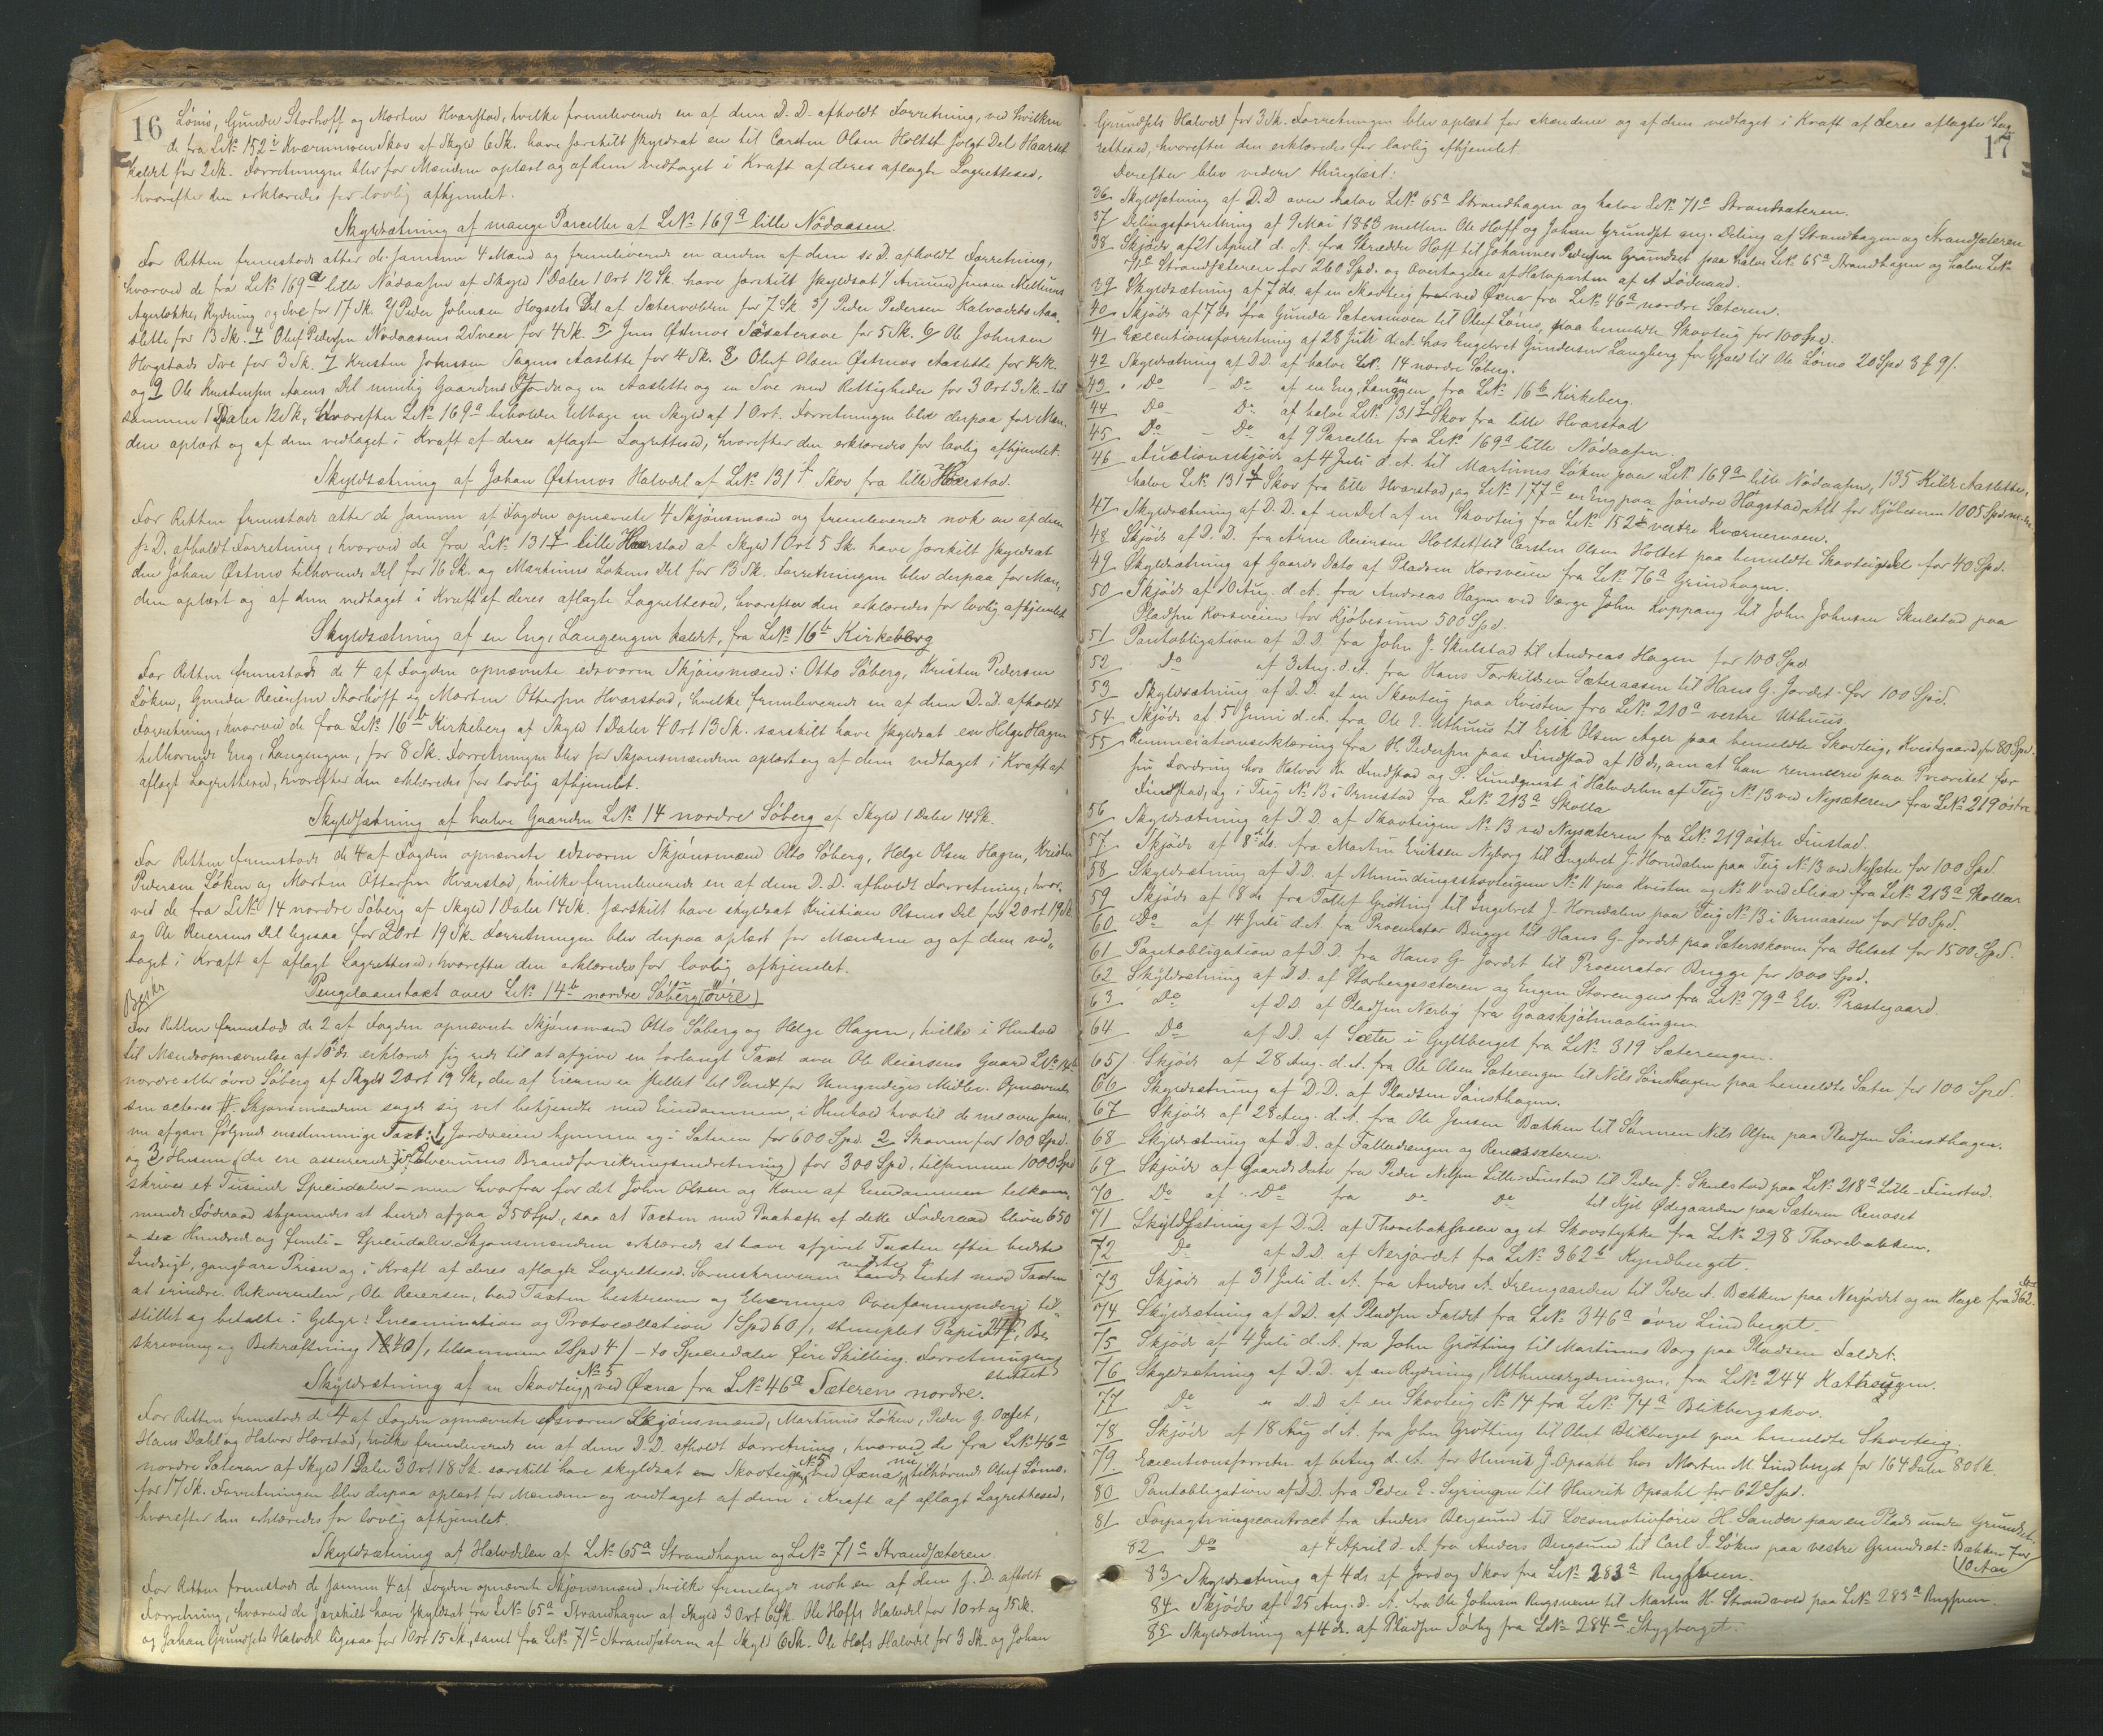 16
Lømo, Gunder Storhoff og Morten Hvarstad, hvilke fremleverede en af dem D. D. afholdt Forretning, ved hvilken
de fra L.№ 152 Kværnmoen Skov af Skyld 6 Sk. have særskilt skyldsat en til Carsten Olsen Holtet solgt Del Haarset
kaldet for 2 Sk. Forretningen blev for Mændene oplæst og af dem vedtaget i Kraft af deres aflagte Lagrettesed,
hvorefter den erklæredes for lovlig afhjemlet.
Skyldsætning af mange Parceller af L.№ 169a lille Nødaasen.
For Retten fremstode atter de samme 4 Mænd og fremleverede en anden af dem s. D. afholdt Forretning,
hvorved de fra L.№ 169a lille Nødaasen af Skyld 1 Daler 1 Ort 12 Sk. have særskilt skyldsat 1/ Amund Jensen Melluns
Agerløkke, Rydning og Sve for 17 Sk. 2/ Peder Johnsen Hogsets Del af Sætervolden for 7 Sk. 3/ Peder Pedersen Kalvodets Aa-
slette for 13 Sk. 4 Oluf Pedersen Nødaasens 2 Sveer for 4 Sk. 5 Jens Østmos Søsætersve for 5 Sk. 6 Ole Johnsen
Hogstads Sve for 3 Sk. 7 Kristen Johnsen Sagens Aaslette for 4 Sk. 8 Oluf Olsen Østmos Aaslette for 4 Sk.
og 9 Ole Kristensen Aaens Del nemlig Gaardens Jorde og en Aaslette og en Sve med Rettigheder for 3 Ort 3 Sk. - til-
sammen 1 Daler 12 Sk, hvorefter L.№ 169a beholder tilbage en Skyld af 1 Ort. Forretningen blev derpaa for Mæn-
dene oplæst og af dem vedtaget i Kraft af deres aflagte Lagrettesed, hvorefter den erklæredes for lovlig afhjemlet.
Skyldsætning af Johan Østmos Halvdel af L.№ 131f Skov fra lille Hvarstad.
For Retten fremstode atter de samme af Fogden opnævnte 4 Skjønsmænd og fremleverede nok en af dem
s. D. afholdt Forretning, hvorved de fra L.№ 131f lille Hvarstad af Skyld 1 Ort 5 Sk. have særskilt skyldsat
den Johan Østmo tilhørende Del for 16 Sk. og Martinus Løkens Del for 13 Sk. Forretningen blev derpaa for Mæn-
dene oplæst og af dem vedtaget i Kraft af deres aflagte Lagrettesed, hvorefter den erklæredes for lovlig afhjemlet
Skyldsætning af en Eng, Langengen kaldet, fra L.№ 16b Kirkeberg
For Retten fremstode de 4 af Fogden opnævnte edsvorne Skjønsmænd: Otto Søberg, Kristen Pedersen
Løken, Gunder Reiersen Storhoff og Morten Ottersen Hvarstad, hvilke fremleverede en af dem D. D. afholdt
Forretning, hvorved de fra L.№ 16b Kirkeberg af Skyld 1 Daler 4 Ort 13 Sk. særskilt have skyldsat en Helge Hagen
tilhørende Eng, Langengen, for 8 Sk. Forretningen blev for Skjønsmændene oplæst og af dem vedtaget i Kraft af
aflagt Lagrettesed, hvorefter den erklæredes for lovlig afhjemlet.
Skyldsætning af halve Gaarden L.№ 14 nordre Søberg af Skyld 1 Daler 14 Sk.
For Retten fremstode de 4 af Fogden opnævnte edsvorne Skjønsmænd Otto Søberg, Helge Olsen Hagen, Kristen
Pedersen Løken og Morten Ottersen Hvarstad, hvilke fremleverede en af dem D. D. afholdt Forretning, hvor-
ved de fra L.№ 14 nordre Søberg af Skyld 1 Daler 14 Sk. særskilt have skyldsat Kristian Olsens Del for 2 Ort 19 Sk
og Ole Reiersens Del ligesaa for 2 Ort 19 Sk. Forretningen blev derpaa oplæst for Mændene og af dem ved-
taget i Kraft af aflagt Lagrettesed, hvorefter den erklæredes for lovlig afhjemlet.
Besk
Pengelaanstaxt over L.№ 14b nordre Søberg (øvre)
For Retten fremstode de 2 af Fogden opnævnte Skjønsmænd Otto Søberg og Helge Hagen, hvilke i Henhold
til Mændsopnævnelse af 10 ds. erklærede sig rede til at afgive en forlangt Taxt over Ole Reiersens Gaard L.№ 14b
nordre eller øvre Søberg af Skyld 2 Ort 19 Sk, der af Eieren er stillet til Pant for Umyndiges Midler. Opnævnelsen
acteres #. Skjønsmændene sagde sig vel bekjendte med Eiendommen, i Henhold hvortil de nu oven sam-
me afgave følgende enstemmige Taxt: 1, Jordveien hjemme og i Sæteren for 600 Spd. 2 Skoven for 100 Spd.
og 3 Husene (der ere assurerede i Elverums Brandforsikringsindretning) for 300 Spd, tilsammen 1000 Spd
skriver et Tusinde Speciedaler - men hvorfra for det John Olsen og Kone af Eiendommen tilkom-
mende Føderaad skjønnedes at burde afgaa 350 Spd., saa at Taxten med Fradrag af dette Føderaad bliver 650
- sex Hundrede og femti - Speciedaler. Skjønsmændene erklærede at have afgivet Taxten efter bedste
Indsigt, gangbare Priser og i Kraft af deres aflagte Lagrettesed. Sorenskriveren vidste Intet mod Taxten
at erindre. Rekvirenten, Ole Reiersen, bad Taxten beskreven og Elverums Overformynderi til-
stillet og betalte i Gebyr: Incamination og Protocollation 1 Spd 60 /, stemplet Papir 24 /, Be-
skrivning og Bekræftning 40 /, tilsammen 2 Spd 4 / - to Speciedaler fire Skilling. Forretningen
sluttet
Skyldsætning af en Skovteig № 5 ved Øxna fra L.№ 46a Sæteren nordre.
For Retten fremstode de 4 af Fogden opnævnte edsvorne Skjønsmænd, Martinus Løken, Peder G. Oxset,
Hans Dahl og Halvor Hærstad, hvilke fremleverede en af dem D. D. afholdt Forretning, hvorved de fra L.№ 46a
nordre Sæteren af Skyld 1 Daler 3 Ort 18 Sk. særskilt have skyldsat en Skovteig № 5 ved Øxna nu tilhørende Oluf Lømo,
for 17 Sk. Forretningen blev derpaa oplæst for Mændene og vedtaget af dem i Kraft af aflagt Lagrettesed,
hvorefter den erklæredes for lovlig afhjemlet.
Skyldsætning af Halvdelen af L.№ 65a Strandhagen og L.№ 71c Strandsæteren
For Retten fremstode de samme 4 af Fogden opnævnte Skjønsmænd, hvilke fremlagde nok en af dem s. D. afholdt
Forretning, hvorved de særskilt have skyldsat fra L.№ 65a Strandhagen af Skyld 3 Ort 6 Sk. Ole Hoffs Halvdel for 1 Ort og 15 Sk.
og Johan Grundsets Halvdel ligesaa for 1 Ort 15 Sk., samt fra L.№ 71c Strandsæteren af Skyld 6 Sk. Ole Hofs Halvdel for 3 Sk. og Johan
17
Grundsets Halvdel for 3 Sk. Forretningen blev oplæst for Mændene og af dem vedtaget i Kraft af deres aflagte Lag-
rettesed, hvorefter den erklæredes for lovlig afhjemlet
Derefter blev videre thinglæst:
36 Skyldsætning af D. D over halve L.№ 65a Strandhagen og halve L.№ 71c Strandsæteren.
37 Delingsforretning af 9 Mai 1863 mellem Ole Hoff og Johan Grundset ang. Deling af Strandhagen og Strandsæteren
38 Skjøde af 21 April d. A. fra Skrædder Hoff til Johannes Pedersen Grundset paa halve L.№ 65a Strandhagen og halve L.№
71c Strandsæteren for 260 Spd. og Overtagelse af Halvparten af et Føderaad.
39 Skyldsætning af 7 ds. af en Skovteig ved Øxna fra L.№ 46a nordre Sæteren.
40 Skjøde af 7 ds fra Gunder Sætersmoen til Oluf Lømo, paa bemeldte Skovteig for 100 Spd.
41 Executionsforretning af 28 Juli d. A. hos Engebret Gundersen Langberg for Gjæld til Ole Lømo 20 Spd 3 ß 9/.
42 Skyldsætning af D D. af halve L.№ 14 nordre Søberg.
43 Do - Do af en Eng, Langengen fra L.№ 16b Kirkeberg.
44 Do - Do af halve L.№ 131f Skov fra lille Hvarstad
45 Do - Do af 9 Parceller fra L.№ 169a lille Nødaasen.
46 Auctionsskjøde af 4 Juli d. A. til Martinus Løken paa L.№ 169a lille Nødaasen, 135 Kilde Aaslette,
halve L.№ 131f Skov fra lille Hvarstad, og L.№ 177c en Eng paa søndre Hagstad, Alt for Kjøbesum 1005 Spd m.m.
47 Skyldsætning af D. D. af en Del af en Skovteig fra L.№ 152 vestre Kværnmoen.
48 Skjøde af D. D. fra Arne Reiersen Holtet til Carsten Olsen Holtet paa bemeldte Skovteigdel for 40 Spd.
49 Skyldsætning af Gaards Dato af Pladsen Korsveien fra L.№ 76a Grindhagen.
50 Skjøde af 10 Aug. d. A. fra Andreas Hagen ved Værge John Koppang til John Johnsen Skulstad paa
Pladsen Korsveien for Kjøbesum 500 Spd.
51 Pantobligation af D. D fra John J. Skulstad til Andreas Hagen for 100 Spd
52 Do af 3 Aug. d. A. fra Hans Torkildsen Sæteraasen til Hans G. Jordet for 100 Spd.
53 Skyldsætning af D. D. af en Skovteig paa Kvisten fra L.№ 210a vestre Uthuus.
54 Skjøde af 5 Juni d. A. fra Ole E. Uthuus til Erik Olsen Ager paa bemeldte Skovteig, Kvistgaard, for 80 Spd.
55 Renunciationserklæring fra H. Pedersen paa Findstad af 10 ds, om at han renuncere paa Prioritet for
sin Fordring hos Halvor Findstad og P. Lundquist i Halvdelen af Teig № 13 ved Nysæteren fra L.№ 219 østre
Findstad, og i Teig № 13 i Ormstad fra L.№ 213a Skolla
56 Skyldsætning af D D. af Skovteigen № 13 ved Nysæteren fra L.№ 219 østre Finstad.
57 Skjøde af 8 ds. fra Martin Eriksen Nyborg til Ingebret J. Horndalen paa Teig № 13 ved Nysæter for 100 Spd.
58 Skyldsætning af D D. af Almindingsskovteigen № 11 paa Kvisten og № 11 ved Flisa fra L.№ 213a Skollen
59 Skjøde af 8 ds fra Tollef Grøtting til Ingebret J. Horndalen paa Teig № 13 i Ormaasen for 40 Spd.
60 Do af 14 Juli d. A fra Procurator Bugge til Hans G. Jordet paa Sætersskoven fra Helset for 1500 Spd.
61 Pantobligation af D. D. fra Hans G. Jordet til Procurator Bugge for 1000 Spd.
62 Skyldsætning af D D. af Storbergssæteren og Engen Storengen fra L.№ 79a Elv. Præstegaard.
63 Do af D D af Pladsen Nerby fra Gaaskjølmaalingen
64 Do af D D. af Sæter i Gyltberget fra L.№ 319 Sæterengen.
65/ Skjøde af 28 Aug. d. A. fra Ole Olsen Sæterengen til Nils Sønsthagen paa bemeldte Sæter for 100 Spd.
66 Skyldsætning af D. D. af Pladsen Sønsthagen.
67 Skjøde af 28 Aug. d. A. fra Ole Jensen Bækken til Sønnen Nils Olsen paa Pladsen Sønsthagen.
68 Skyldsætning af D. D. af Falladvengen og Renaasæteren.
69 Skjøde af Gaards dato fra Peder Nilsen Lille-Finstad til Peder J. Skulstad paa L.№ 218a Lille-Finstad.
70 Do af Do fra Do Do til Kjel Ødegaarden paa Sæteren Renaset
71 Skyldsætning af D. D. af Thorebaksveen og et Skovstykke fra L.№ 298 Thorebakken.
72 Do af D. D af Nerjordet fra L.№ 362b Kyndberget.
73 Skjøde af 31 Juli d. A. fra Anders A. Fremgaarden til Peder A. Bækken paa Nerjordet og en Hage fra L.№ 362.
74 Skyldsætning af D D. af Pladsen Faldet fra L.№ 346a øvre Lindberget.
75 Skjøde af 4 Juli d. A. fra John Grøtting til Martinus Borg paa Pladsen Faldet.
76 Skyldsætning af D. D. af en Rydning, Uthuusrydningen, fra L.№ 244
77 Do - D. D af en Skovteig № 14 fra L.№ 74a Blikbergskov.
78 Skjøde af 18 Aug d A. fra John Grøtting til Oluf Blikberget paa bemeldte Skovteig.
79 Executionsforretn. af 6 Aug d. A. for Henrik J. Opsahl hos Morten M. Lindberget for 164 Daler 80 Sk.
80 Pantobligation af D. D. fra Peder E. Syringen til Henrik Opsahl for 62 Spd.
81 Forpagtningscontract fra Anders Bergsund til Locomotivfører H. Sander paa en Plads under Grundset.
82 Do af 4 April d. A. fra Anders Bergsund til Carl J. Løken paa vestre Grundset-Bækken for
10 Aar
83 Skyldsætning af 4 ds. af Jord og Skov fra L.№ 283a Rugsveen.
84 Skjøde af 25 Aug. d. A. fra Ole Johnsen Rugsveen til Martin H. Strandvold paa L.№ 283a Rugsveen.
85 Skyldsætning af 4 ds. af Pladsen Sørby fra L.№ 284c Stygberget.